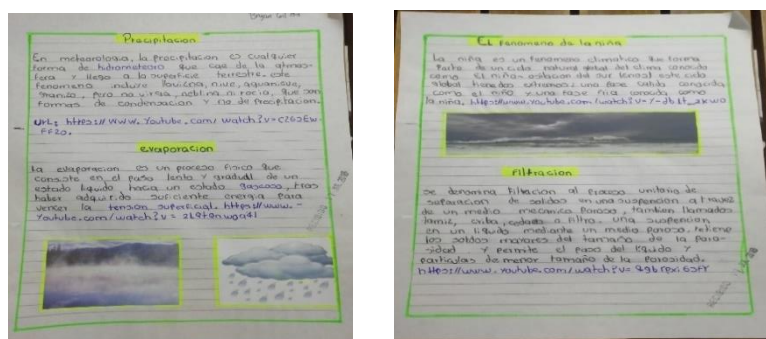 Precipitacion
En meteorologia, la precipitacion es cualquier
forma de hidrometeoro que cae de la atmos-
fera y llega a la superficie terrestre. este
fenomeno incluye lluvia, nieve, aguanieve,
granizo, pero no virga, neblina ni rocio, que son
formas de condensacion y no de precipitacion.
URL: https://www.Youtube.com/watch?v=
evaporacion
la evaporacion es un proceso fisico que
consiste en el paso lento y gradual de un
estado liquido hacia un estado gaseoso, tras
haber adquirido suficiente energia para
vencer la tension superficial. https://www.-
Youtube.com/watch?v=
EL Fenomeno de la niña
La niña es un fenomeno climatico que forma
Parte de un ciclo natural global del clima conocido
como El niño- del sur este ciclo
global dos extremos: una fase calida conocida
como el niño y una fase fria conocida como
la niña. https://www.Youtube.com/watch?v=
Filtracion
se denomina Filtracion al Proceso unitario de
separacion de solidos en una suspencion a traves
de un medio mecanico Poroso, tambien llamados
tamiz, criba, cedazo o filtro. una suspencion
en un liquido mediante un medio poroso, retiene
los solidos mayores del tamaño de la poro-
sidad y permite el paso del liquido y
particulas de menor tamaño de la Porosidad.
https://www.Youtube.com/watch?v=